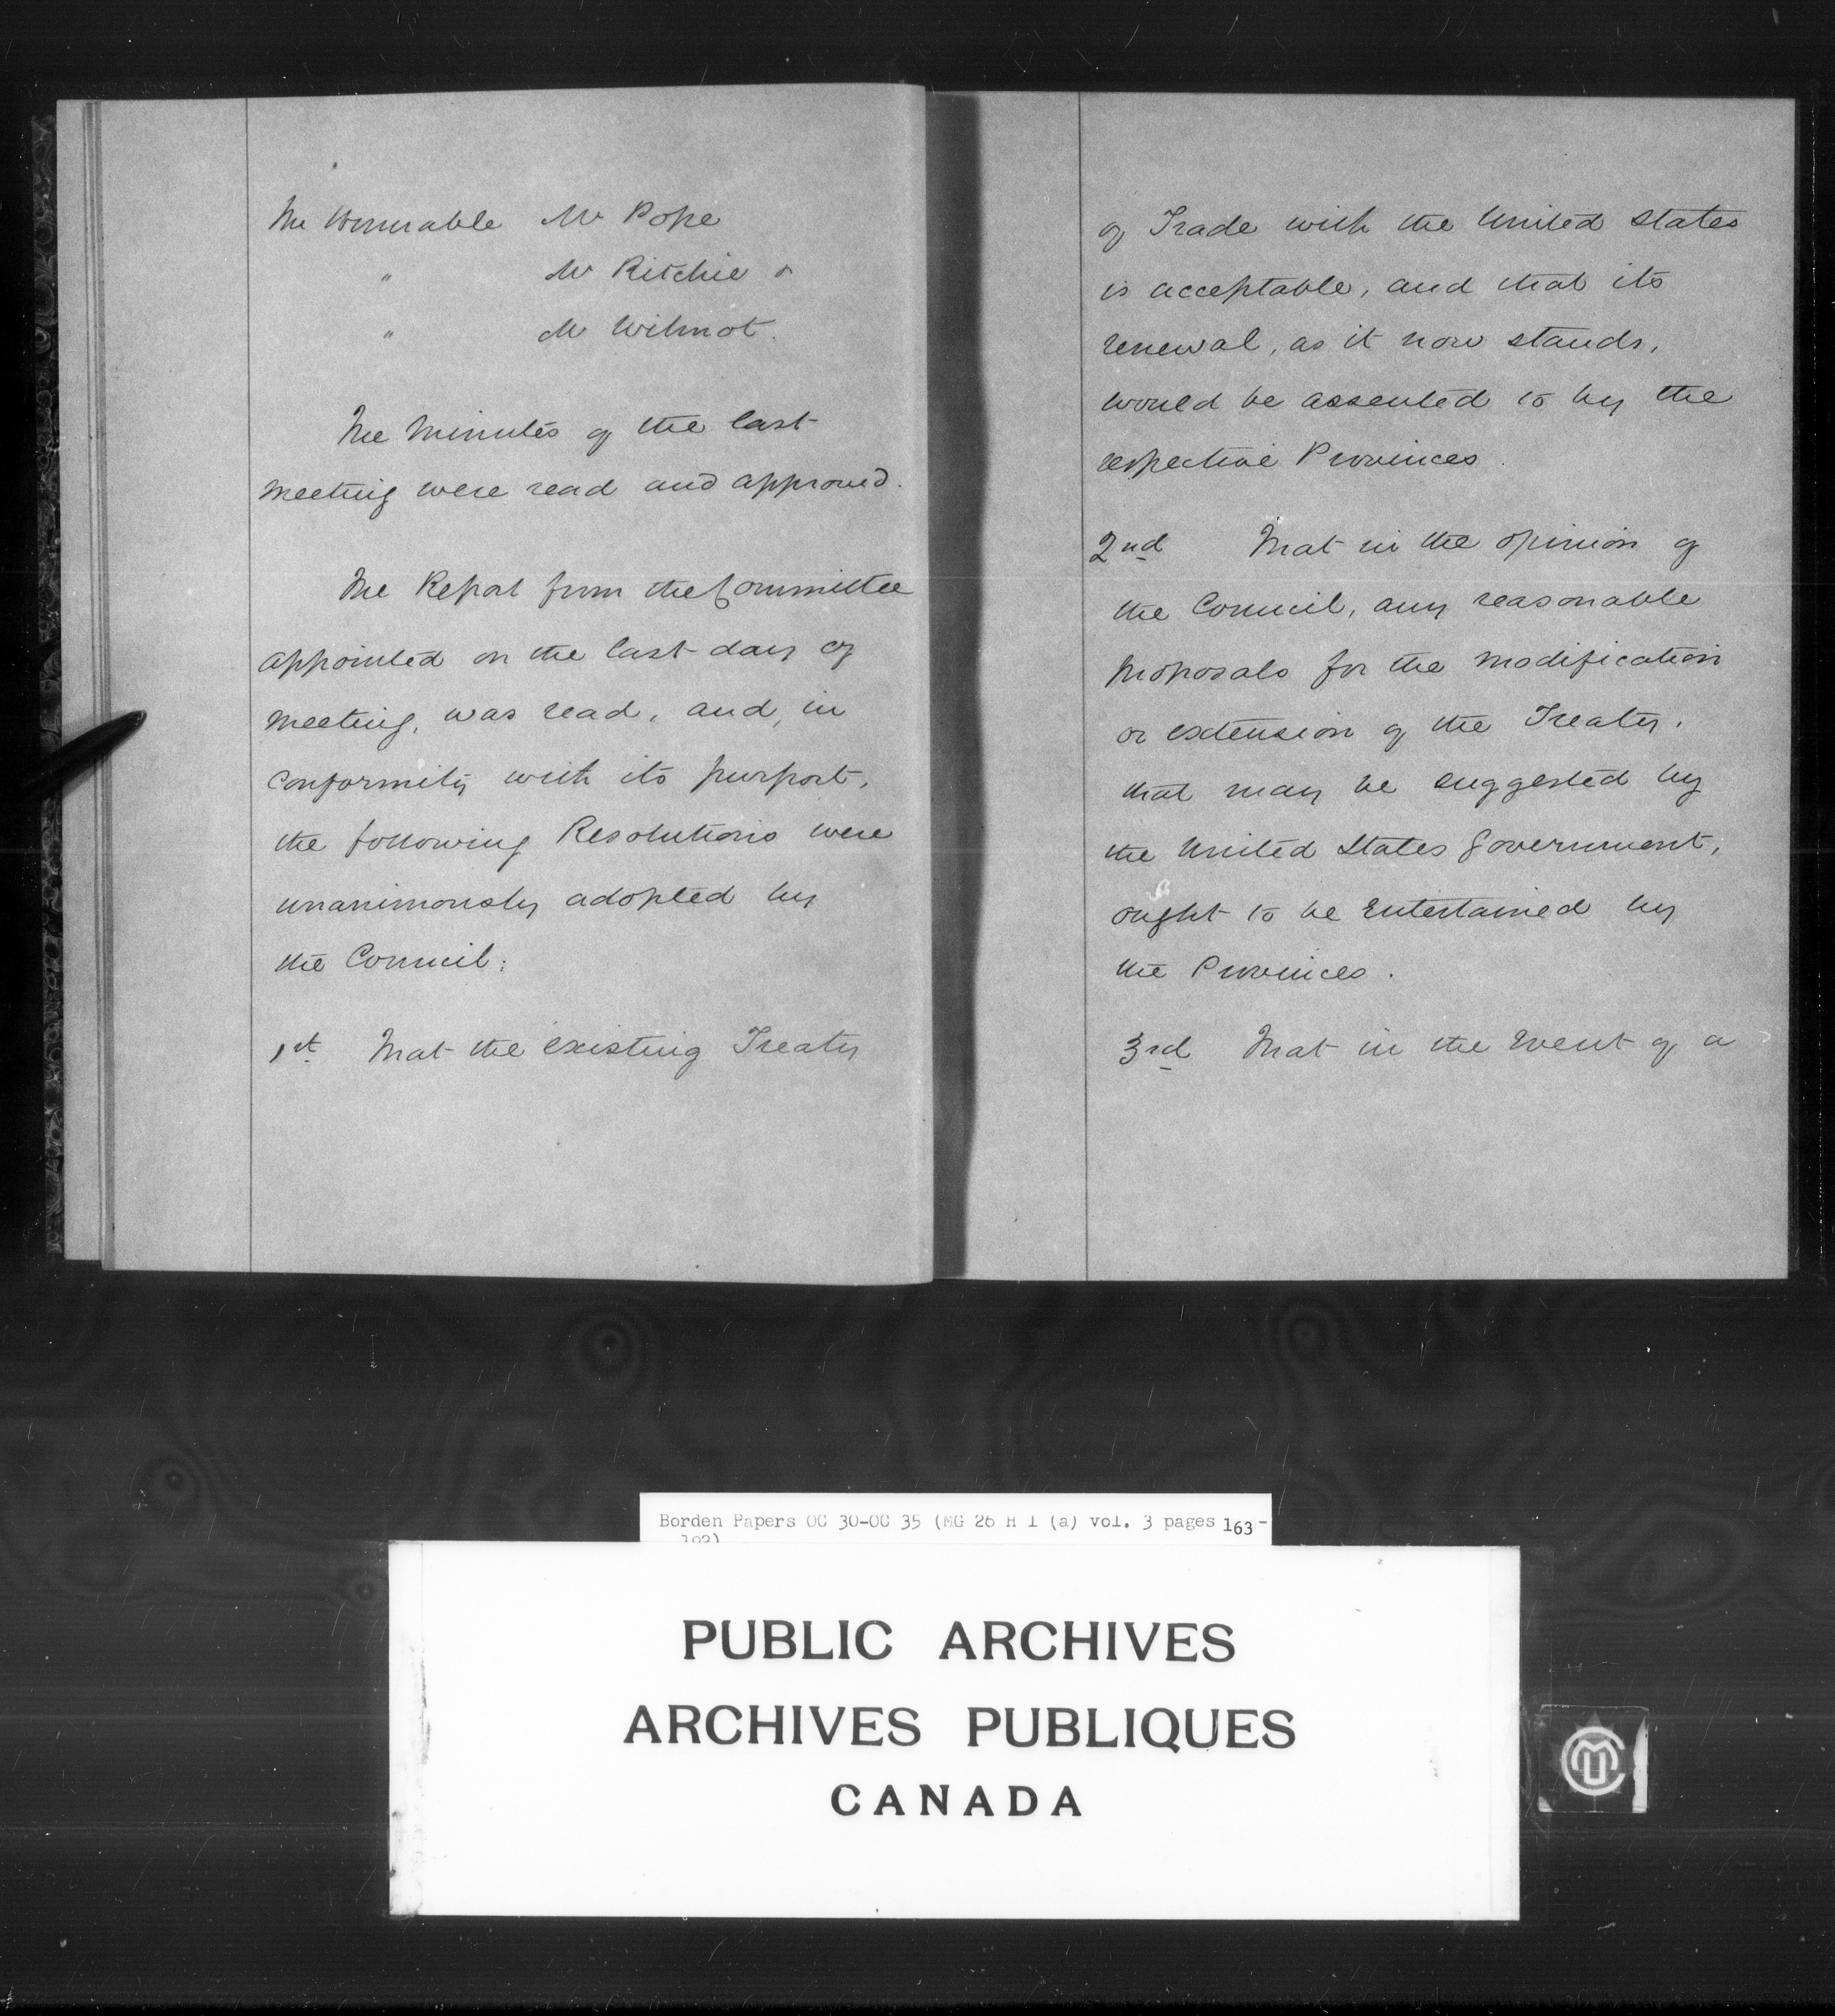 The Honourable Mr Pope
" Mr Ritchie &
" Mr Wilmot.
The Minutes of the last
meeting were read and approved.
The Report from the Committee
appointed on the last day of
meeting, was read, and, in
conformity with its purport,
the following Resolutions were
unanimously adopted by
the Council:
1st That the existing Treaty
of Trade with the United States
is acceptable, and that its
renewal, as it now stands,
would be assented to by the
respective Provinces.
2nd That in the opinion of
the Council, any reasonable
proposals for the modification
or extension of the Treaty,
that may be suggested by
the United States Government,
ought to be entertained by
the Provinces.
3rd That in the event of a
Borden Papers OC 30-OC 35 (MG 26 H 1 (a) vol. 3 pages 163-
192)
PUBLIC ARCHIVES
ARCHIVES PUBLIQUES
CANADA